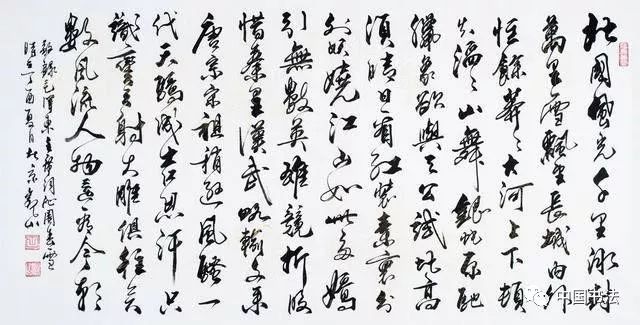 北國風光千里冰封
萬里雪飄望長城內外
惟餘莽々大河上下頓
失滔々山舞銀蛇原馳
臘象欲與天公試比高
須晴日看紅裝素裹分
外妖嬈江山如此多嬌
引無數英雄競折腰
惜秦皇漢武略輸文采
唐宗宋祖稍遜風騷一
代天驕成吉思汗只
識彎弓射大雕俱往矣
數風流人物還看今朝
敬錄毛澤東主席詞沁園春雪
時在丁酉夏月於京
中国书法